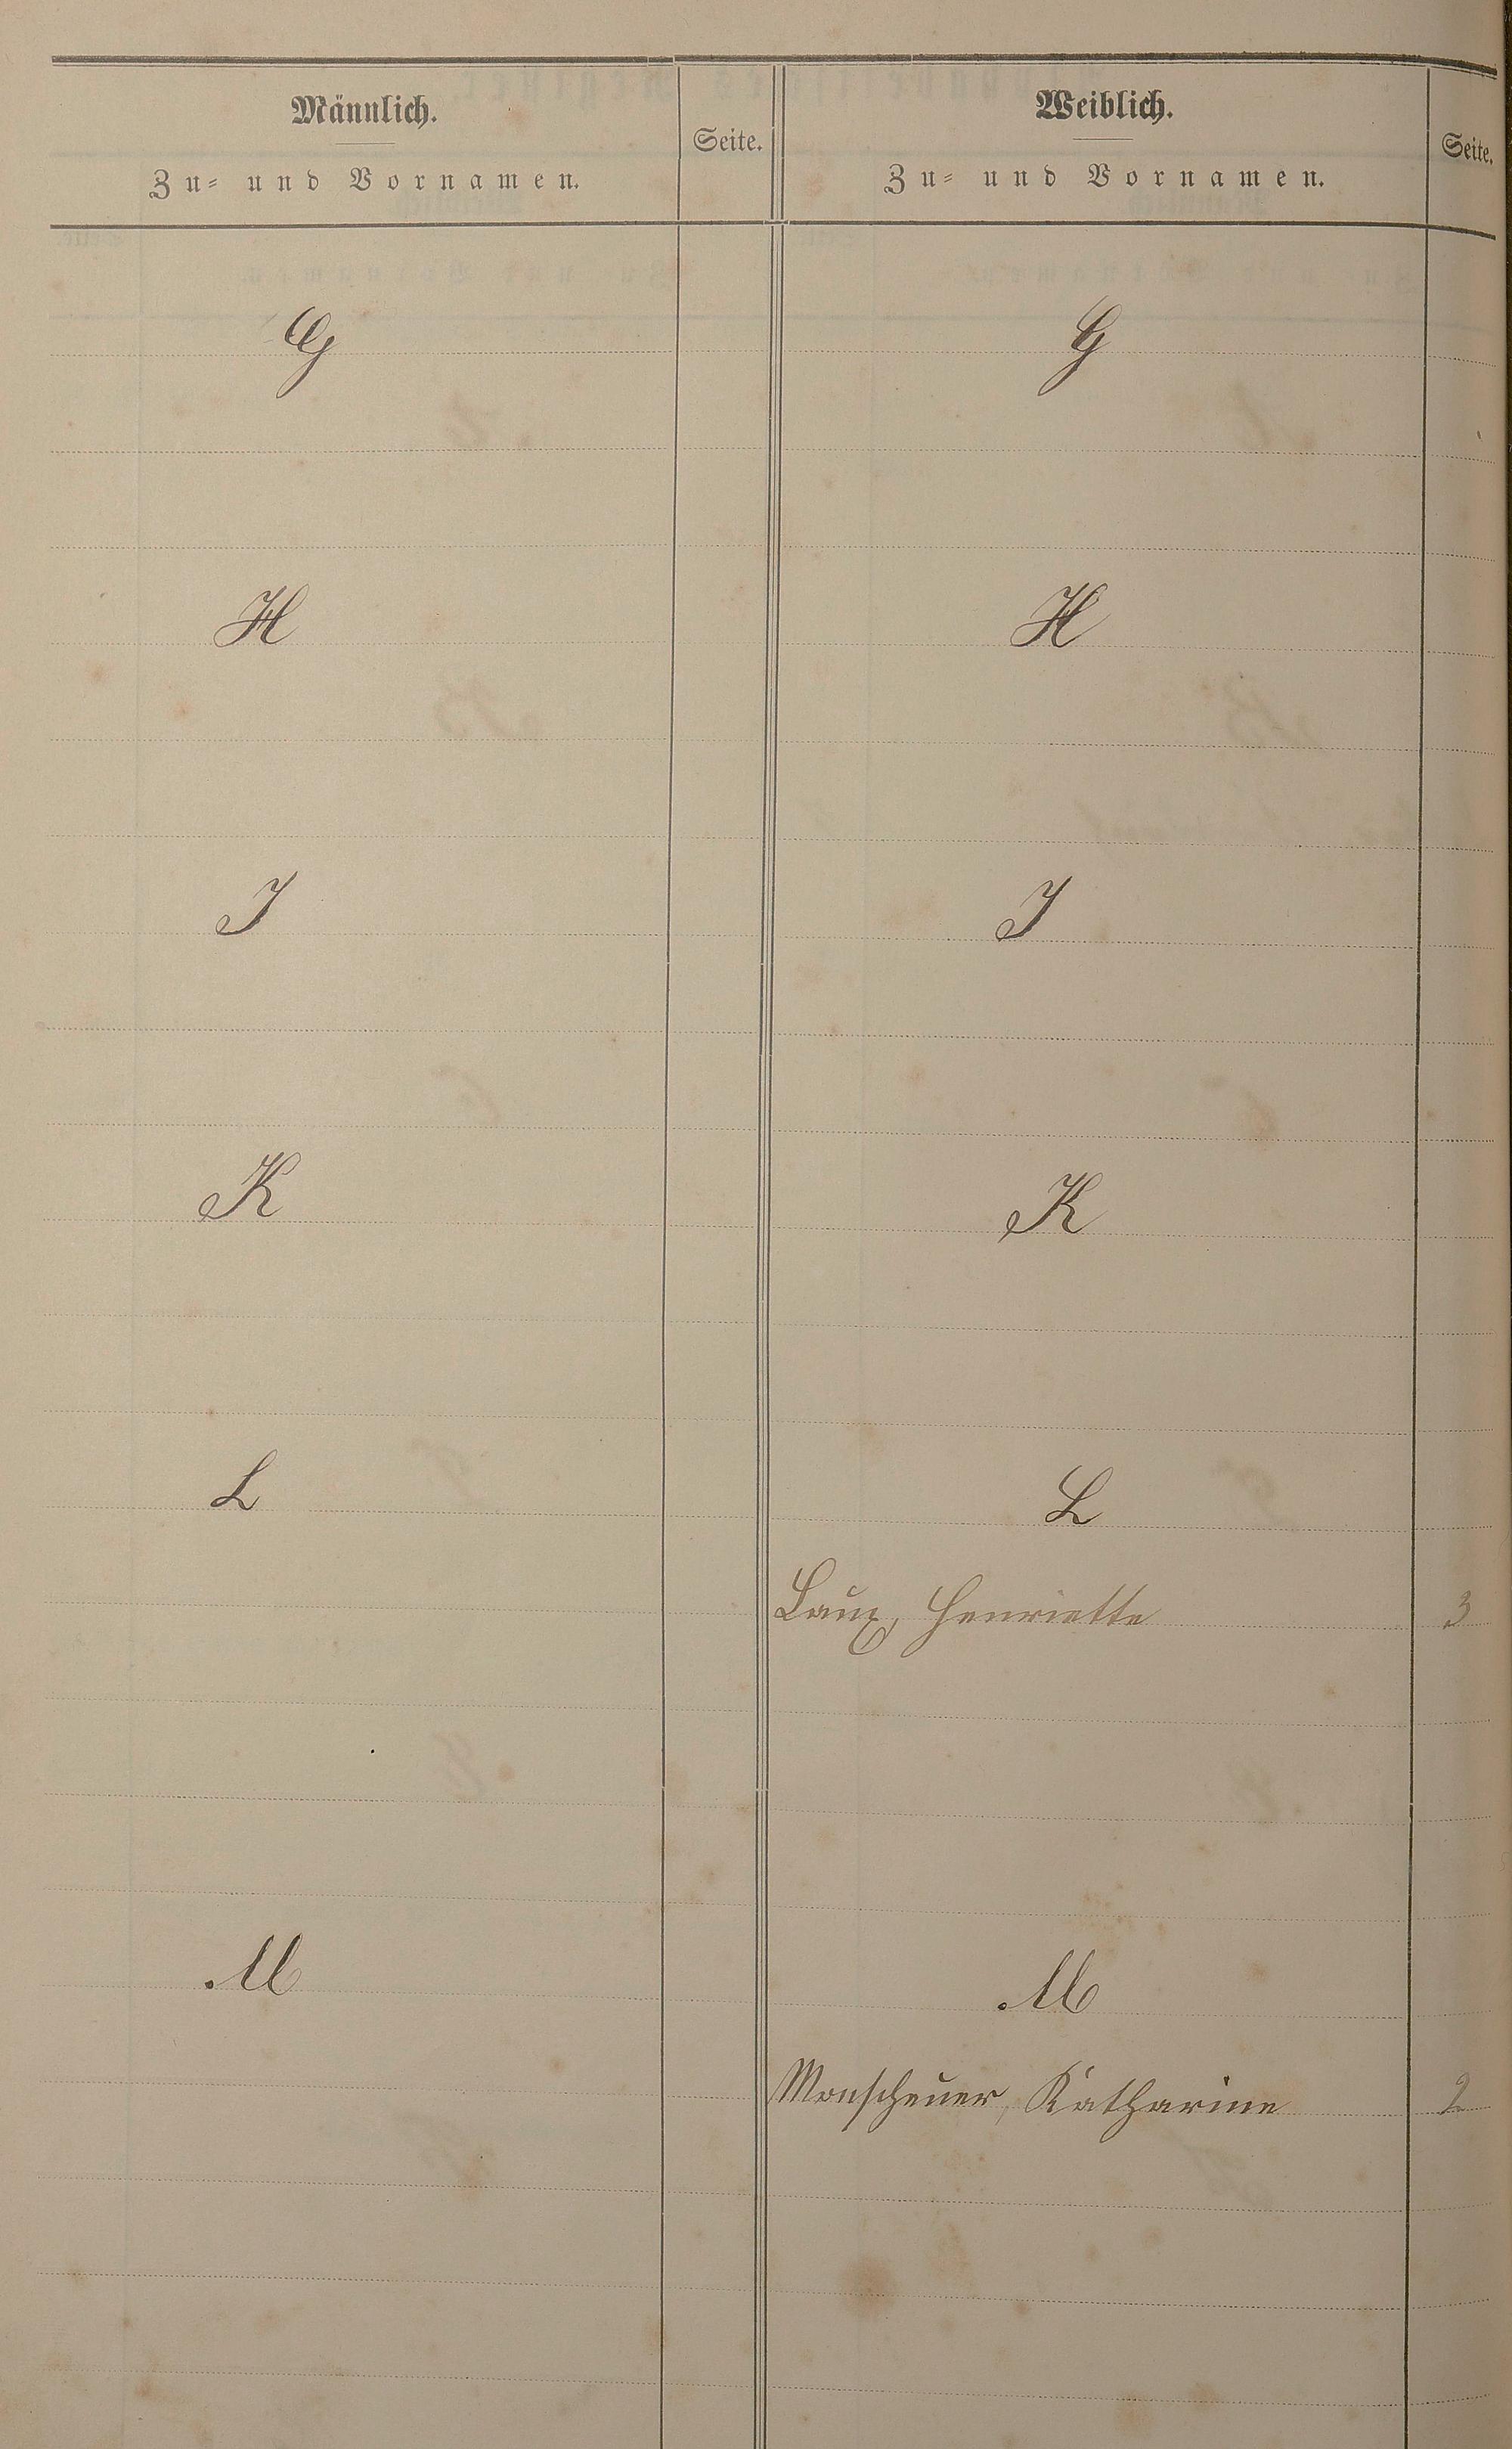 Männlich.
Zu- und Vornamen.
Seite.
Weiblich.
Zu- und Vornamen.
Seite.
G
G
H
H
J
J
K
K
L
L
Laux, Henriette 3
M
M
Monscheuer, Katharine 2